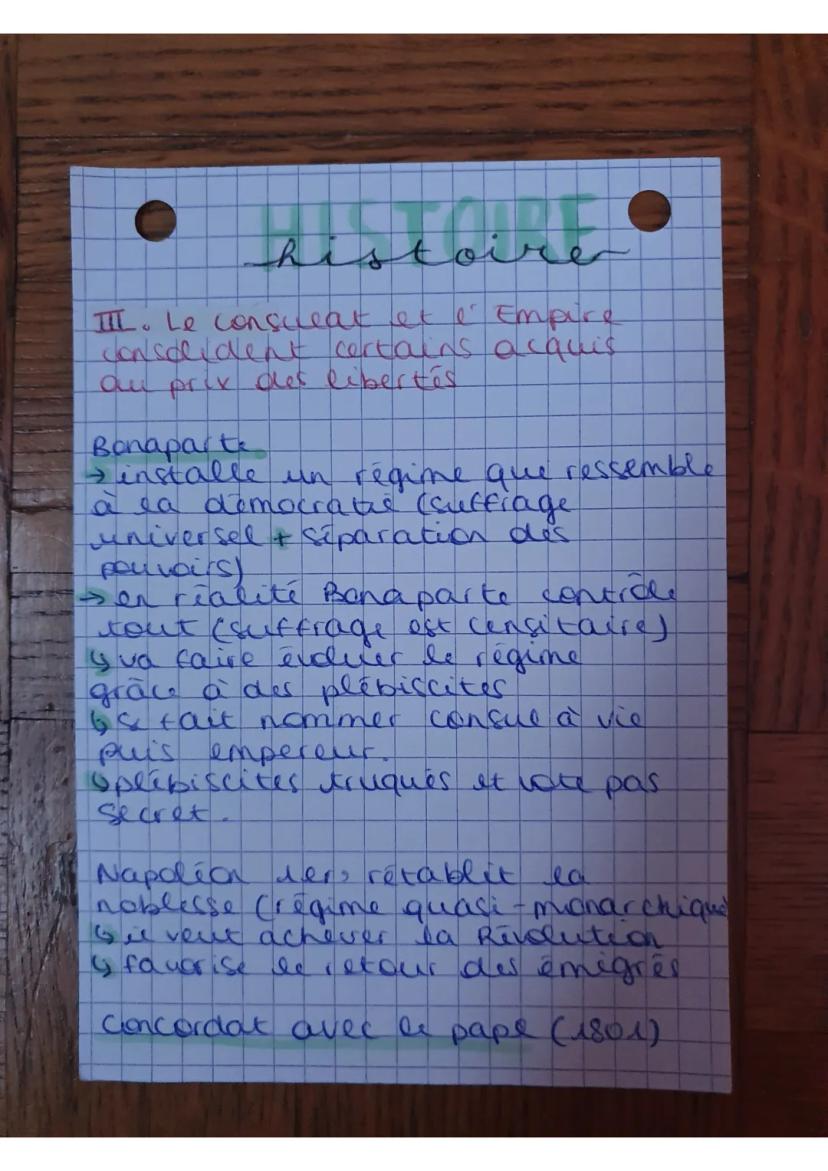 HISTOIRE
histoire
III. Le consulat et l'Empire
consolident certains acquis
au prix des libertés
Bonaparte
→ installe un régime que ressemble
à la démocratie (suffrage
universel + séparation des
pouvoirs)
→ en réalité Bonaparte contrôle
tout (suffrage est censitaire)
↳ va faire évoluer le régime
grâce à des plébiscites
↳ se fait nommer consul à vie
puis empereur.
↳ plébiscites truqués et vote pas
secret.
Napoléon Ier, rétablit la
noblesse (régime quasi-monarchique
↳ il veut achever la Révolution
↳ favorise le retour des émigrés
Concordat avec le pape (1801)